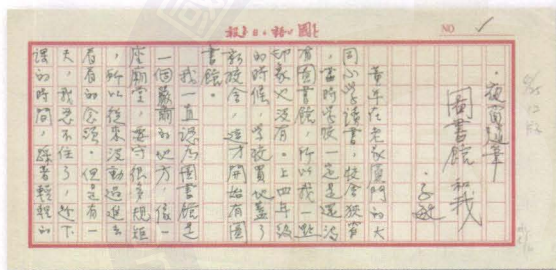 NO ✓
·夜窗隨筆
圖書館和我
·子敏
童年在老家廈門的大
同小學讀書,校舍狹窄
,當時學校一定是還沒
有圖書館,所以我一點
印象也沒有。上四年級
的時候,學校買地蓋了
新校舍,這才開始有圖
書館。
我一直認為圖書館是
一個嚴肅的地方,像一
座廟堂,要守很多規矩
,所以從來沒動過進去
看看的念頭。但是有一
天,我忍不住了,趁下
課的時間,踩著輕輕的